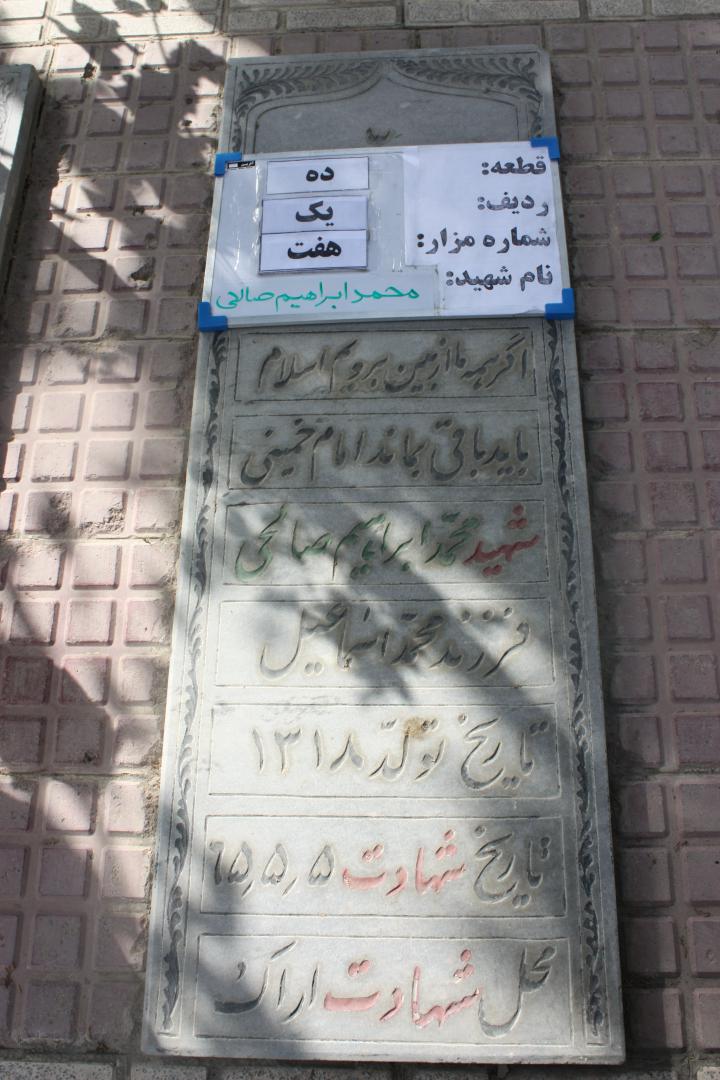 قطعه: ده
ردیف: یک
شماره مزار: هفت
نام شهید: محمد ابراهیم صالحی
اگر همه ما از بین برویم اسلام
باید باقی بماند امام خمینی
شهید محمد ابراهیم صالحی
فرزند محمد اسماعیل
تاریخ تولّد ۱۳۱۸
تاریخ شهادت ۵٫۵٫۶۵
محل شهادت اراک